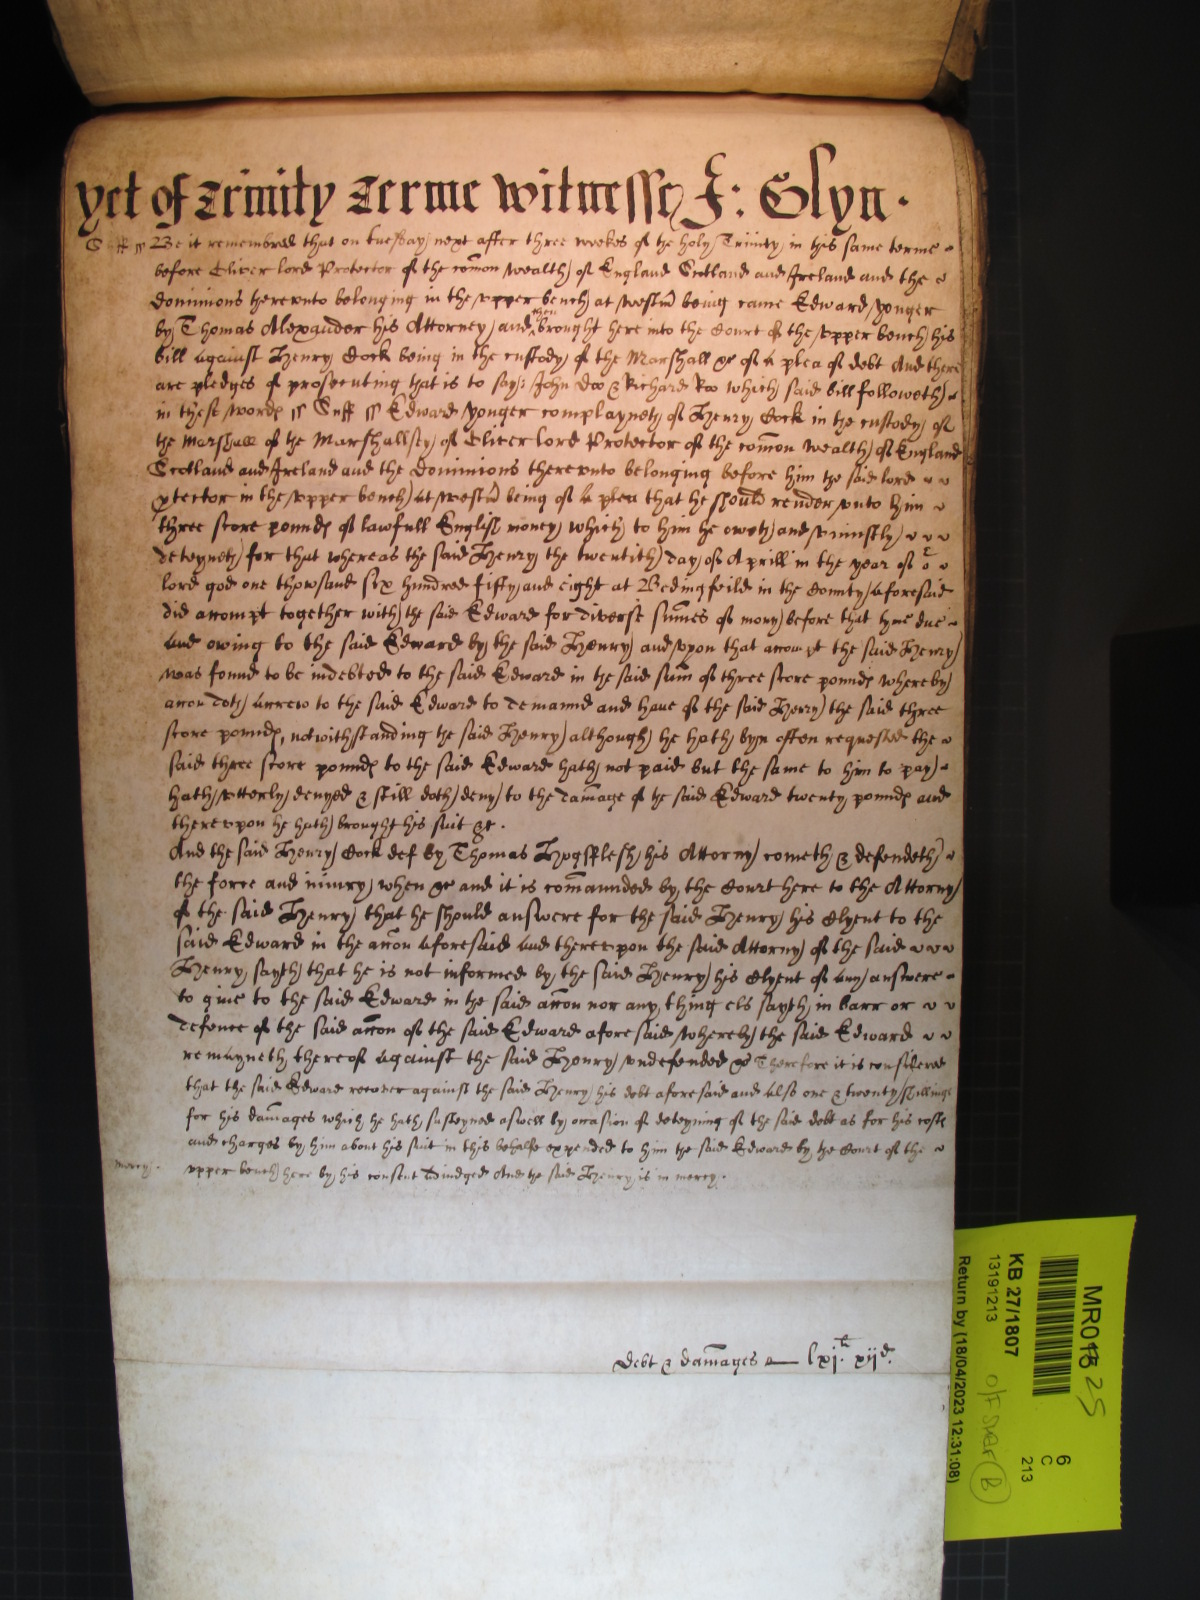 yet of Trinity Terme witnesse J: Glyn.
Suff ss Be it remembred that on tuesday next after three weekes of the holy Trinity in this same terme
before Oliver lord Protector of the com̄on wealth of England Scotland and Ireland and the
dominions thereunto belonging in the upper bench at westm̄ being came Edward yonger
by Thomas Alexander his Attorney and then brought here into the Court of the upper bench his
bill against Henry Cock being in the custody of the Marshall &c of a plea of debt And there
are pledges of prosecuting that is to say: John Doo & Richard Roo which said bill followeth
in these words ss Suff ss Edward yonger complayneth of Henry Cock in the custody of
the Marshall of the Marshallsey of Oliver lord Protector of the com̄on wealth of England
Scotland and Ireland and the dominions thereunto belonging before him the said lord
ptector in the upper bench at westm̄ being of a plea that he should render unto him
three score pounds of lawfull English money which to him he oweth and uniustly
deteyneth for that whereas the said Henry the twentith day of Aprill in the year of or
lord god one thowsand six hundred fifty and eight at Bedingfeild in the County aforesaid
did accompt together with the said Edward for diverse sum̄es of mony before that tyme due
and owing to the said Edward by the said Henry and upon that accompt the said Henry
was found to be indebted to the said Edward in the said sum̄ of three score pounds whereby
accon doth accrew to the said Edward to demaund and have of the said Henry the said three
score pounds, notwithstanding the said Henry although he hath byn often requested the
said three score pounds to the said Edward hath not paid but the same to him to pay
hath utterly denyed & still doth deny to the dam̄age of the said Edward twenty pounds and
thereupon he hath brought his suit &c.
And the said Henry Cock def by Thomas Hogsflesh his Attorny cometh & defendeth
the force and iniury when &c and it is com̄aunded by the Court here to the Attorny
of the said Henry that he should answere for the said Henry his Clyent to the
said Edward in the accon aforesaid And thereupon the said Attorny of the said
Henry sayth that he is not informed by the said Henry his Clyent of any answere
to give to the said Edward in the said accon nor any thing els sayth in barr or
defence of the said accon of the said Edward aforesaid whereby the said Edward
remayneth thereof against the said Henry undefended &c Therefore it is considered
that the said Edward recover against the said Henry his debt aforesaid and also one & twenty shillings
for his dam̄ages which he hath susteyned aswell by occasion of deteyning of the said debt as for his costs
and charges by him about his suit in this behalfe expended to him the said Edward by the Court of the
mercy. upper bench here by his consent Adiudged And the said Henry is in mercy.
Debt & dam̄ages lxjli. xijd.
MR018 25
KB 27/1807
13191213
Return by (18/04/2023 12:31:08)
6
C
213
B